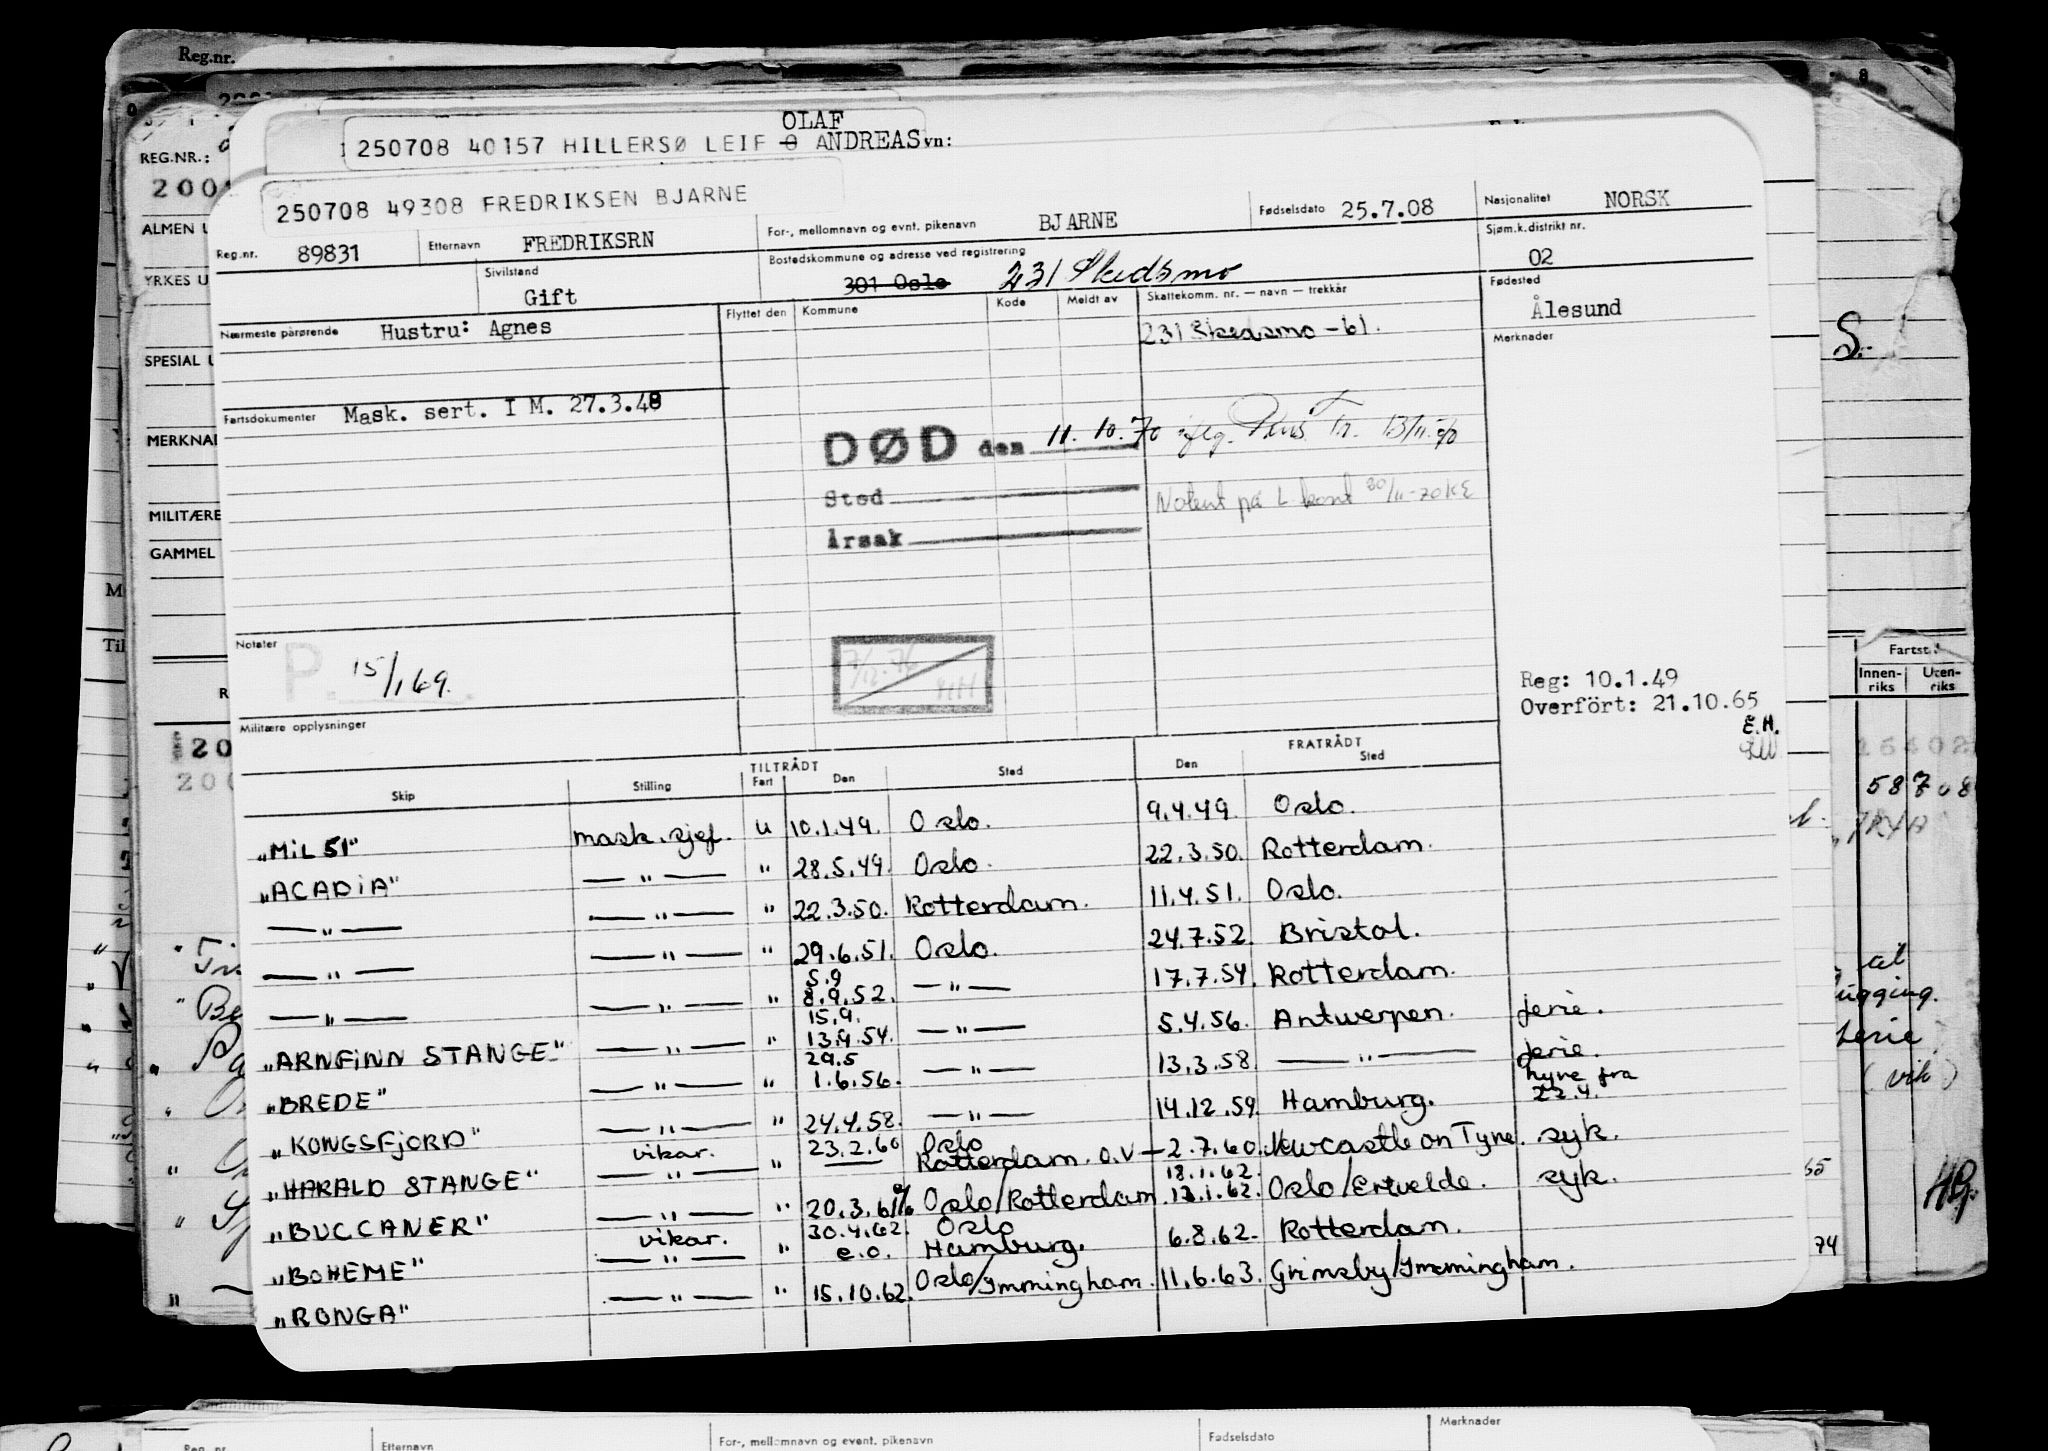 Reg.nr.
REG.NR.:
OLAF
250708 40157 HILLERSØ LEIF O ANDREAS vn:
250708 49308 FREDRIKSEN BJARNE
Reg.nr. 89831 Etternavn FREDRIKSRN For-, mellomnavn og evnt. pikenavn BJARNE Fødselsdato 25.7.08 Nasjonalitet NORSK
Sivilstand Gift Bostedskommune og adresse ved registrering 301 Oslo 231 Skedsmo Sjøm.k.distrikt nr. 02
Nærmeste pårørende Hustru: Agnes Flyttet den Kommune Kode Meldt av Skattekomm. nr. — navn — trekkår Fødested Ålesund
231 Skedsmo -61.
Merknader
Fartsdokumenter Mask. sert. I M. 27.3.48
DØD den 11.10.70 iflg.
Sted
Notert på L kont 30/11-70 KE
Årsak
Notater
P. 15/1 69.
7/12.76
Reg: 10.1.49
Overført: 21.10.65
E.H.
Militære opplysninger
TILTRÅDT FRATRÅDT
Skip Stilling Fart Den Sted Den Sted
"MIL 51" mask. sjef. u 10.1.49. Oslo. 9.4.49. Oslo.
"ACADIA" — " — " 28.5.49. Oslo. 22.3.50. Rotterdam.
— " — — " — " 22.3.50. Rotterdam. 11.4.51. Oslo.
— " — — " — " 29.6.51. Oslo. 24.7.52. Bristol.
5.9
— " — — " — " 8.9.52. — " — 17.7.54. Rotterdam.
15.9.
"ARNFINN STANGE" — " — " 13.9.54. — " — 5.4.56. Antwerpen. ferie.
29.5
"BREDE" — " — " 1.6.56. — " — 13.3.58. — " — ferie.
hyre fra
"KONGSFJORD" — " — " 24.4.58. — " — 14.12.59. Hamburg. 22.4.
vikar. 23.2.60 Oslo
"HARALD STANGE" — " — " — Rotterdam. o.v — 2.7.60. Newcastle on Tyne. syk.
18.1.62.
"BUCCANER" — " — " 20.3.61 Oslo/Rotterdam. 12.1.62. Oslo/Ertvelde. syk.
vikar. 30.4.62. Oslo
"BOHEME" — " — " e.o. Hamburg. 6.8.62. Rotterdam.
"RONGA" — " — " 15.10.62. Oslo/Immingham. 11.6.63. Grimsby/Immingham.
ALMEN U
YRKES U
SPESIAL U
MERKNAD
MILITÆRE
GAMMEL
S.
Fartst
Innen-riks Uten-riks
58708
ugging.
ferie
(vik)
74
Reg. nr. Etternavn For-, mellomnavn og event. pikenavn Fødselsdato Merknader